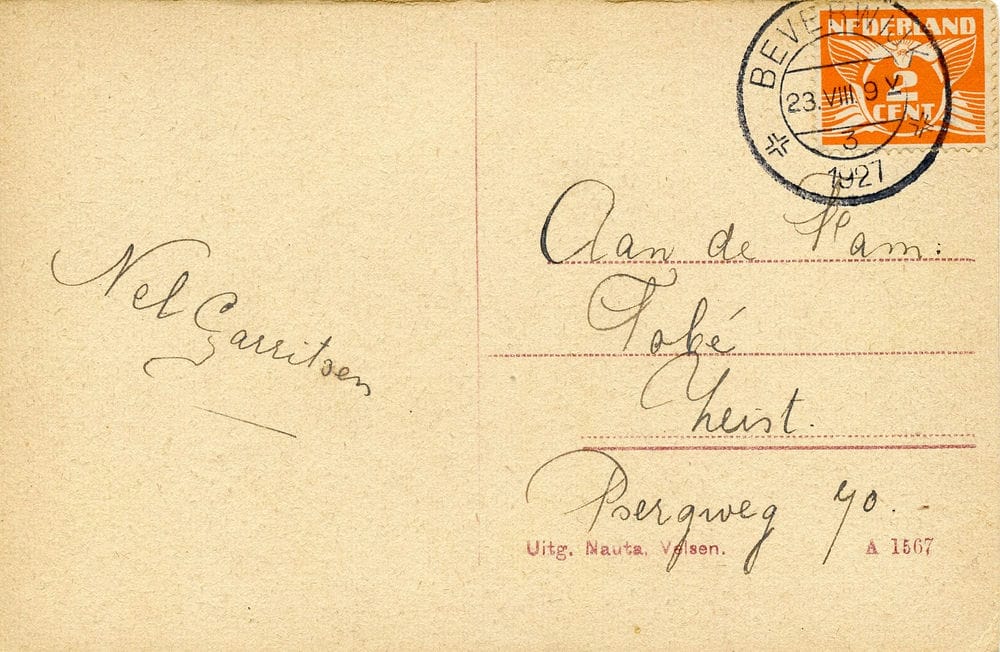 NEDERLAND
2
CENT
BEVERWIJK
23.VIII 9 V
3
1927
Aan de Fam:
Tobé
Zeist.
Bergweg 70.
Nel Garritsen
Uitg. Nauta, Velsen.
A 1567